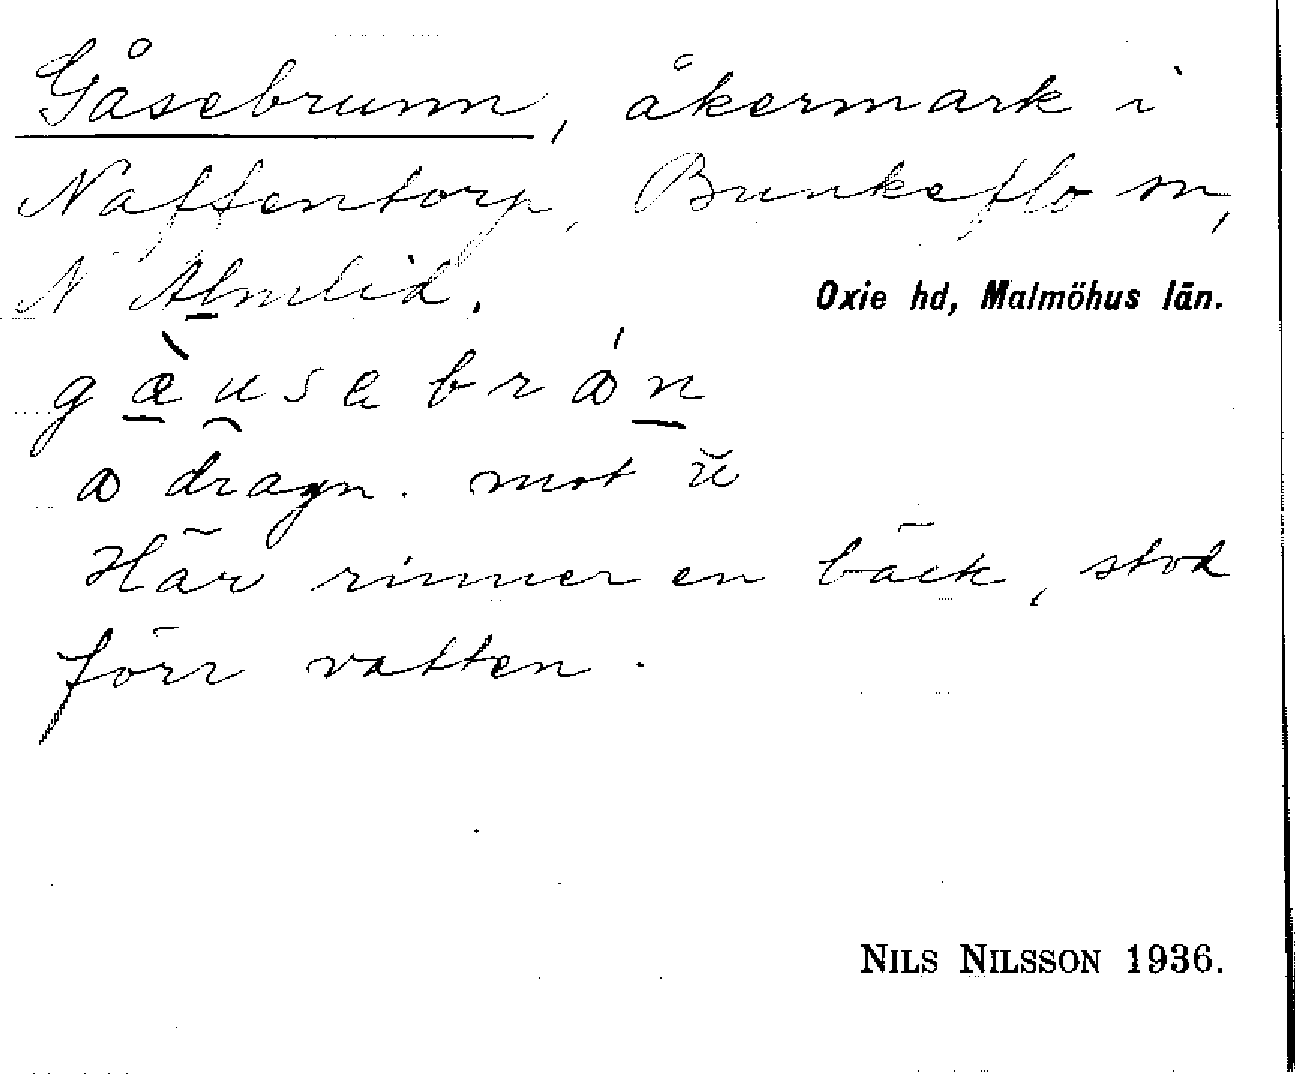 Gåsebrunn, åkermark i
Naffentorp, Bunkeflo sn,
N Almlid.
Oxie hd, Malmöhus län.
gæ̀usabrán
dragn. mot ŭ
Här rinner en bäck, stod
förr vatten.
NILS NILSSON 1936.